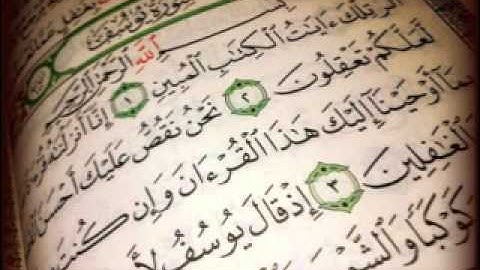 سُورَةُ يُوسُفَ
ٱللَّهِ ٱلرَّحْمَٰنِ ٱلرَّحِيمِ
الٓر تِلْكَ ءَايَٰتُ ٱلْكِتَٰبِ ٱلْمُبِينِ ١ إِنَّآ أَنزَلْنَٰهُ
لَّعَلَّكُمْ تَعْقِلُونَ ٢ نَحْنُ نَقُصُّ عَلَيْكَ أَحْسَنَ
بِمَآ أَوْحَيْنَآ إِلَيْكَ هَٰذَا ٱلْقُرْءَانَ وَإِن كُنتَ
ٱلْغَٰفِلِينَ ٣ إِذْ قَالَ يُوسُفُ
كَوْكَبًا وَٱلشَّمْ